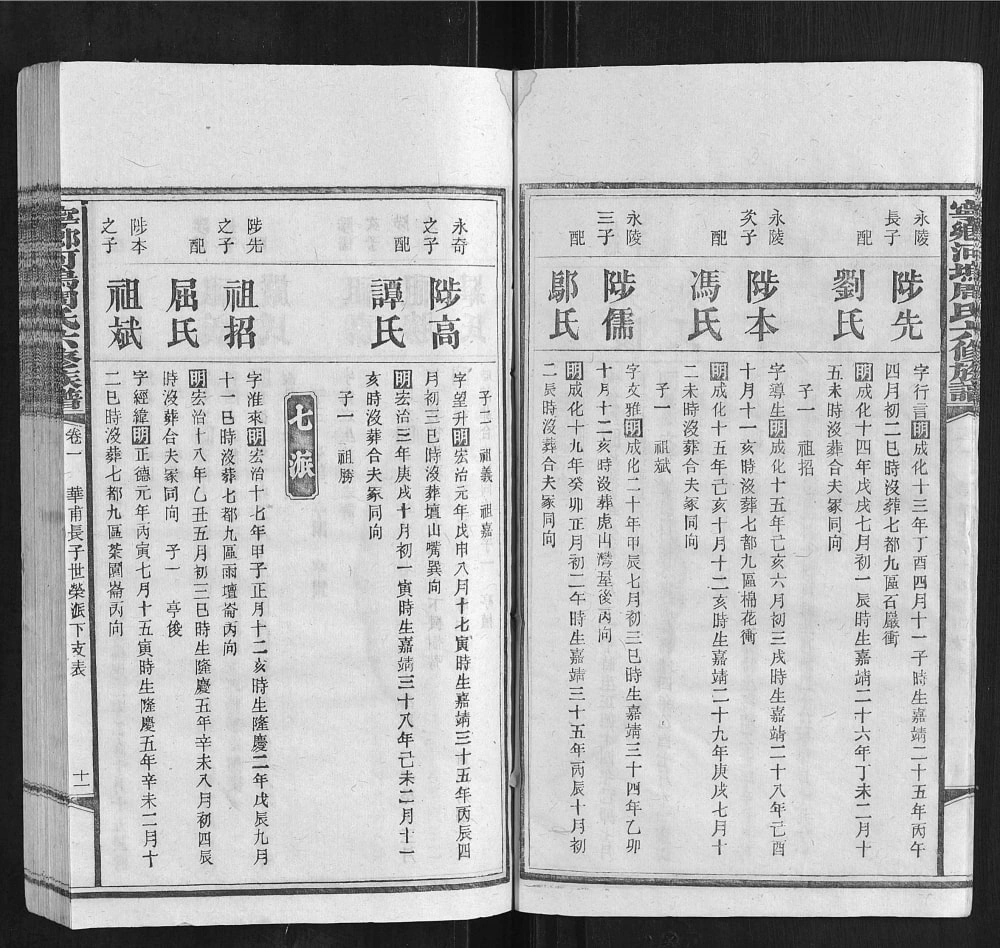 寧鄉河塢周氏六修族譜
永陵
長子
陟先
字行言明成化十三年丁酉四月十一子時生嘉靖二十五年丙午
四月初二巳時沒葬七都九區石巖衝
配
劉氏
明成化十四年戊戌七月初一辰時生嘉靖二十六年丁未二月十
五未時沒葬合夫冢同向
子一 祖招
永陵
次子
陟本
字導生明成化十五年己亥六月初三戌時生嘉靖二十八年己酉
十月十一亥時沒葬七都九區棉花衝
配
馮氏
明成化十五年己亥十月十二亥時生嘉靖二十九年庚戌七月十
二未時沒葬合夫冢同向
子一 祖斌
永陵
三子
陟儒
字文雅明成化二十年甲辰七月初三巳時生嘉靖三十四年乙卯
十月十二亥時沒葬虎山灣屋後丙向
配
鄔氏
明成化十九年癸卯正月初二午時生嘉靖三十五年丙辰十月初
二辰時沒葬合夫冢同向
子二 祖義 祖嘉
永奇
之子
陟高
字望升明宏治元年戊申八月十七寅時生嘉靖三十五年丙辰四
月初三巳時沒葬壇山嘴巽向
配
譚氏
明宏治三年庚戌十月初一寅時生嘉靖三十八年己未二月十一
亥時沒葬合夫冢同向
子一 祖勝
七派
陟先
之子
祖招
字淮來明宏治十七年甲子正月十二亥時生隆慶二年戊辰九月
十一巳時沒葬七都九區雨壇崙丙向
配
屈氏
明宏治十八年乙丑五月初三巳時生隆慶五年辛未八月初四辰
時沒葬合夫冢同向 子一 亭俊
陟本
之子
祖斌
字經緯明正德元年丙寅七月十五寅時生隆慶五年辛未二月十
二巳時沒葬七都九區菜園崙丙向
寧鄉河塢周氏六修族譜 卷一 華甫長子世榮派下支表 十二